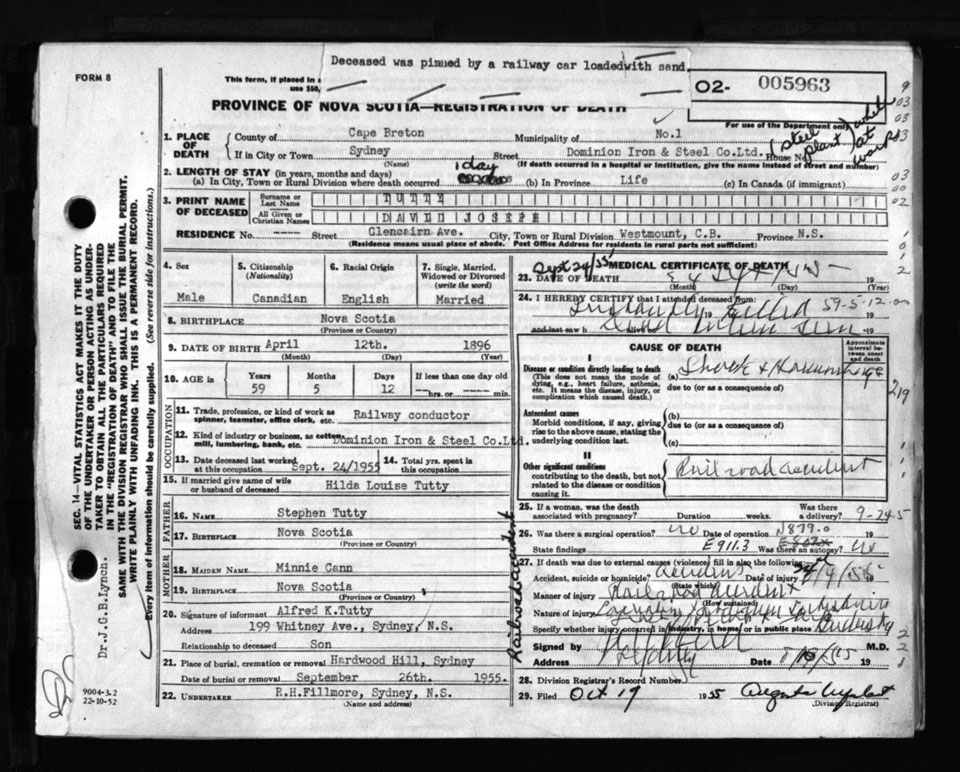 Deceased was pinned by a railway car loaded with sand.
FORM 8
This form, if placed in a
use $50,
02- 005963
PROVINCE OF NOVA SCOTIA—REGISTRATION OF DEATH
For use of the Department only
(steel plant) while at work
1. PLACE OF DEATH
County of Cape Breton Municipality of No.1
If in City or Town Sydney Street Dominion Iron & Steel Co.Ltd. House No.
(Name) (If death occurred in a hospital or institution, give the name instead of street and number)
2. LENGTH OF STAY (in years, months and days)
(a) In City, Town or Rural Division where death occurred 1 day (b) In Province Life (c) In Canada (if immigrant)
3. PRINT NAME OF DECEASED
Surname or Last Name TUTTY
All Given or Christian Names DAVID JOSEPH
RESIDENCE No. --- Street Glencairn Ave. City, Town or Rural Division Westmount, C.B. Province N.S.
(Residence means usual place of abode. Post Office Address for residents in rural parts not sufficient)
4. Sex
Male
5. Citizenship
(Nationality)
Canadian
6. Racial Origin
English
7. Single, Married, Widowed or Divorced
(write the word)
Married
8. BIRTHPLACE Nova Scotia
(Province or Country)
9. DATE OF BIRTH April 12th. 1896
(Month) (Day) (Year)
10. AGE in
Years Months Days If less than one day old
59 5 12 -- hrs. or -- min.
OCCUPATION
11. Trade, profession, or kind of work as spinner, teamster, office clerk, etc. Railway conductor
12. Kind of industry or business, as cotton mill, lumbering, bank, etc. Dominion Iron & Steel Co.Ltd.
13. Date deceased last worked at this occupation Sept. 24/1955
14. Total yrs. spent in this occupation
15. If married give name of wife or husband of deceased Hilda Louise Tutty
FATHER
16. NAME Stephen Tutty
17. BIRTHPLACE Nova Scotia
(Province or Country)
MOTHER
18. MAIDEN NAME: Minnie Cann
19. BIRTHPLACE Nova Scotia
(Province or Country)
20. Signature of informant Alfred K.Tutty
Address 199 Whitney Ave., Sydney, N.S.
Relationship to deceased Son
21. Place of burial, cremation or removal Hardwood Hill, Sydney
Date of burial or removal September 26th. 1955.
22. UNDERTAKER R.H.Fillmore, Sydney, N.S.
(Name and address)
Sept 24/55
MEDICAL CERTIFICATE OF DEATH
23. DATE OF DEATH
(Month) (Day) 19
24. I HEREBY CERTIFY that I attended deceased from:
59-5-12-00
and last saw h
CAUSE OF DEATH
Approximate interval between onset and death
I
Disease or condition directly leading to death
(This does not mean the mode of dying, e.g., heart failure, asthenia, etc. It means the disease, injury, or complication which caused death.)
(a) Shock & Haemorrhage
due to (or as a consequence of)
Antecedent causes
Morbid conditions, if any, giving rise to the above cause, stating the underlying condition last.
(b)
due to (or as a consequence of)
(c)
II
Other significant conditions
contributing to the death, but not related to the disease or condition causing it.
Railroad accident
25. If a woman, was the death associated with pregnancy? Duration weeks. Was there a delivery?
9-24-5
26. Was there a surgical operation? no Date of operation
N879.0
State findings E911.3 Was there an autopsy? no
27. If death was due to external causes (violence) fill in also the following:
Accident, suicide or homicide? Accident Date of injury 24/9/55
(State which)
Manner of injury Railroad accident
(How sustained)
Nature of injury
Specify whether injury occurred in industry, in home, or in public place Industry
Signed by M.D.
Address Sydney Date 19
28. Division Registrar's Record Number
29. Filed Oct 19 1955
(Division Registrar)
Railroad accident
SEC. 14—VITAL STATISTICS ACT MAKES IT THE DUTY
OF THE UNDERTAKER OR PERSON ACTING AS UNDER-
TAKER TO OBTAIN ALL THE PARTICULARS REQUIRED
IN THE "REGISTRATION OF DEATH" AND TO FILE THE
SAME WITH THE DIVISION REGISTRAR WHO SHALL ISSUE THE BURIAL PERMIT.
WRITE PLAINLY WITH UNFADING INK. THIS IS A PERMANENT RECORD.
Every item of information should be carefully supplied. (See reverse side for instructions.)
Dr.J.C.B.Lynch.
9004-3.2
22-10-52